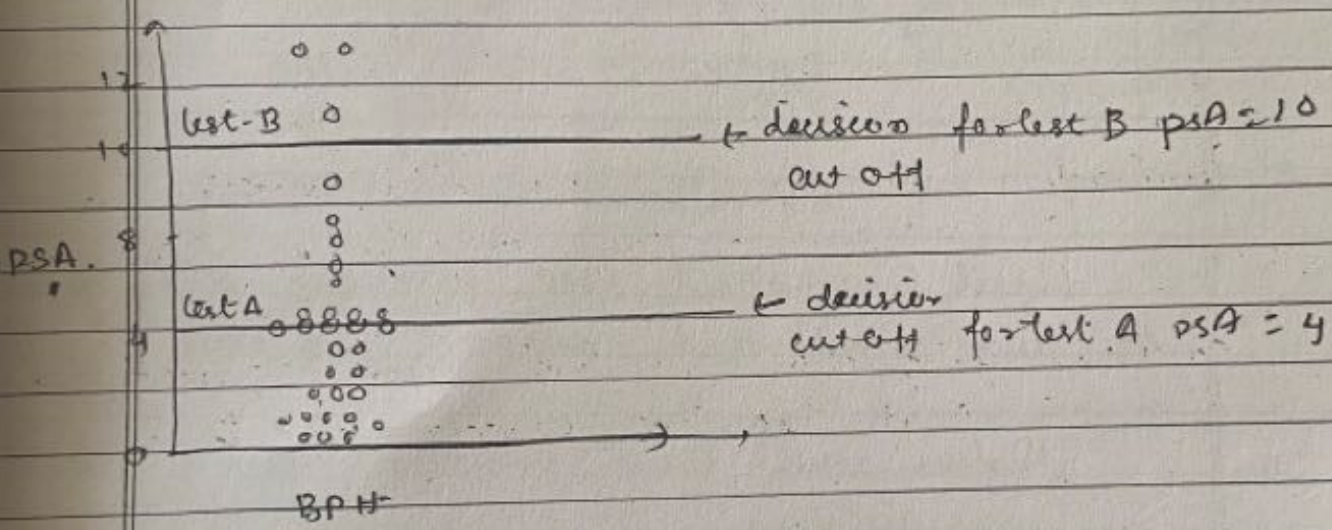 12
test-B ← decision for test B PSA = 10
10
cut off
PSA. 8
test A ← decision
4 cut off for test A PSA = 4
0
BPH